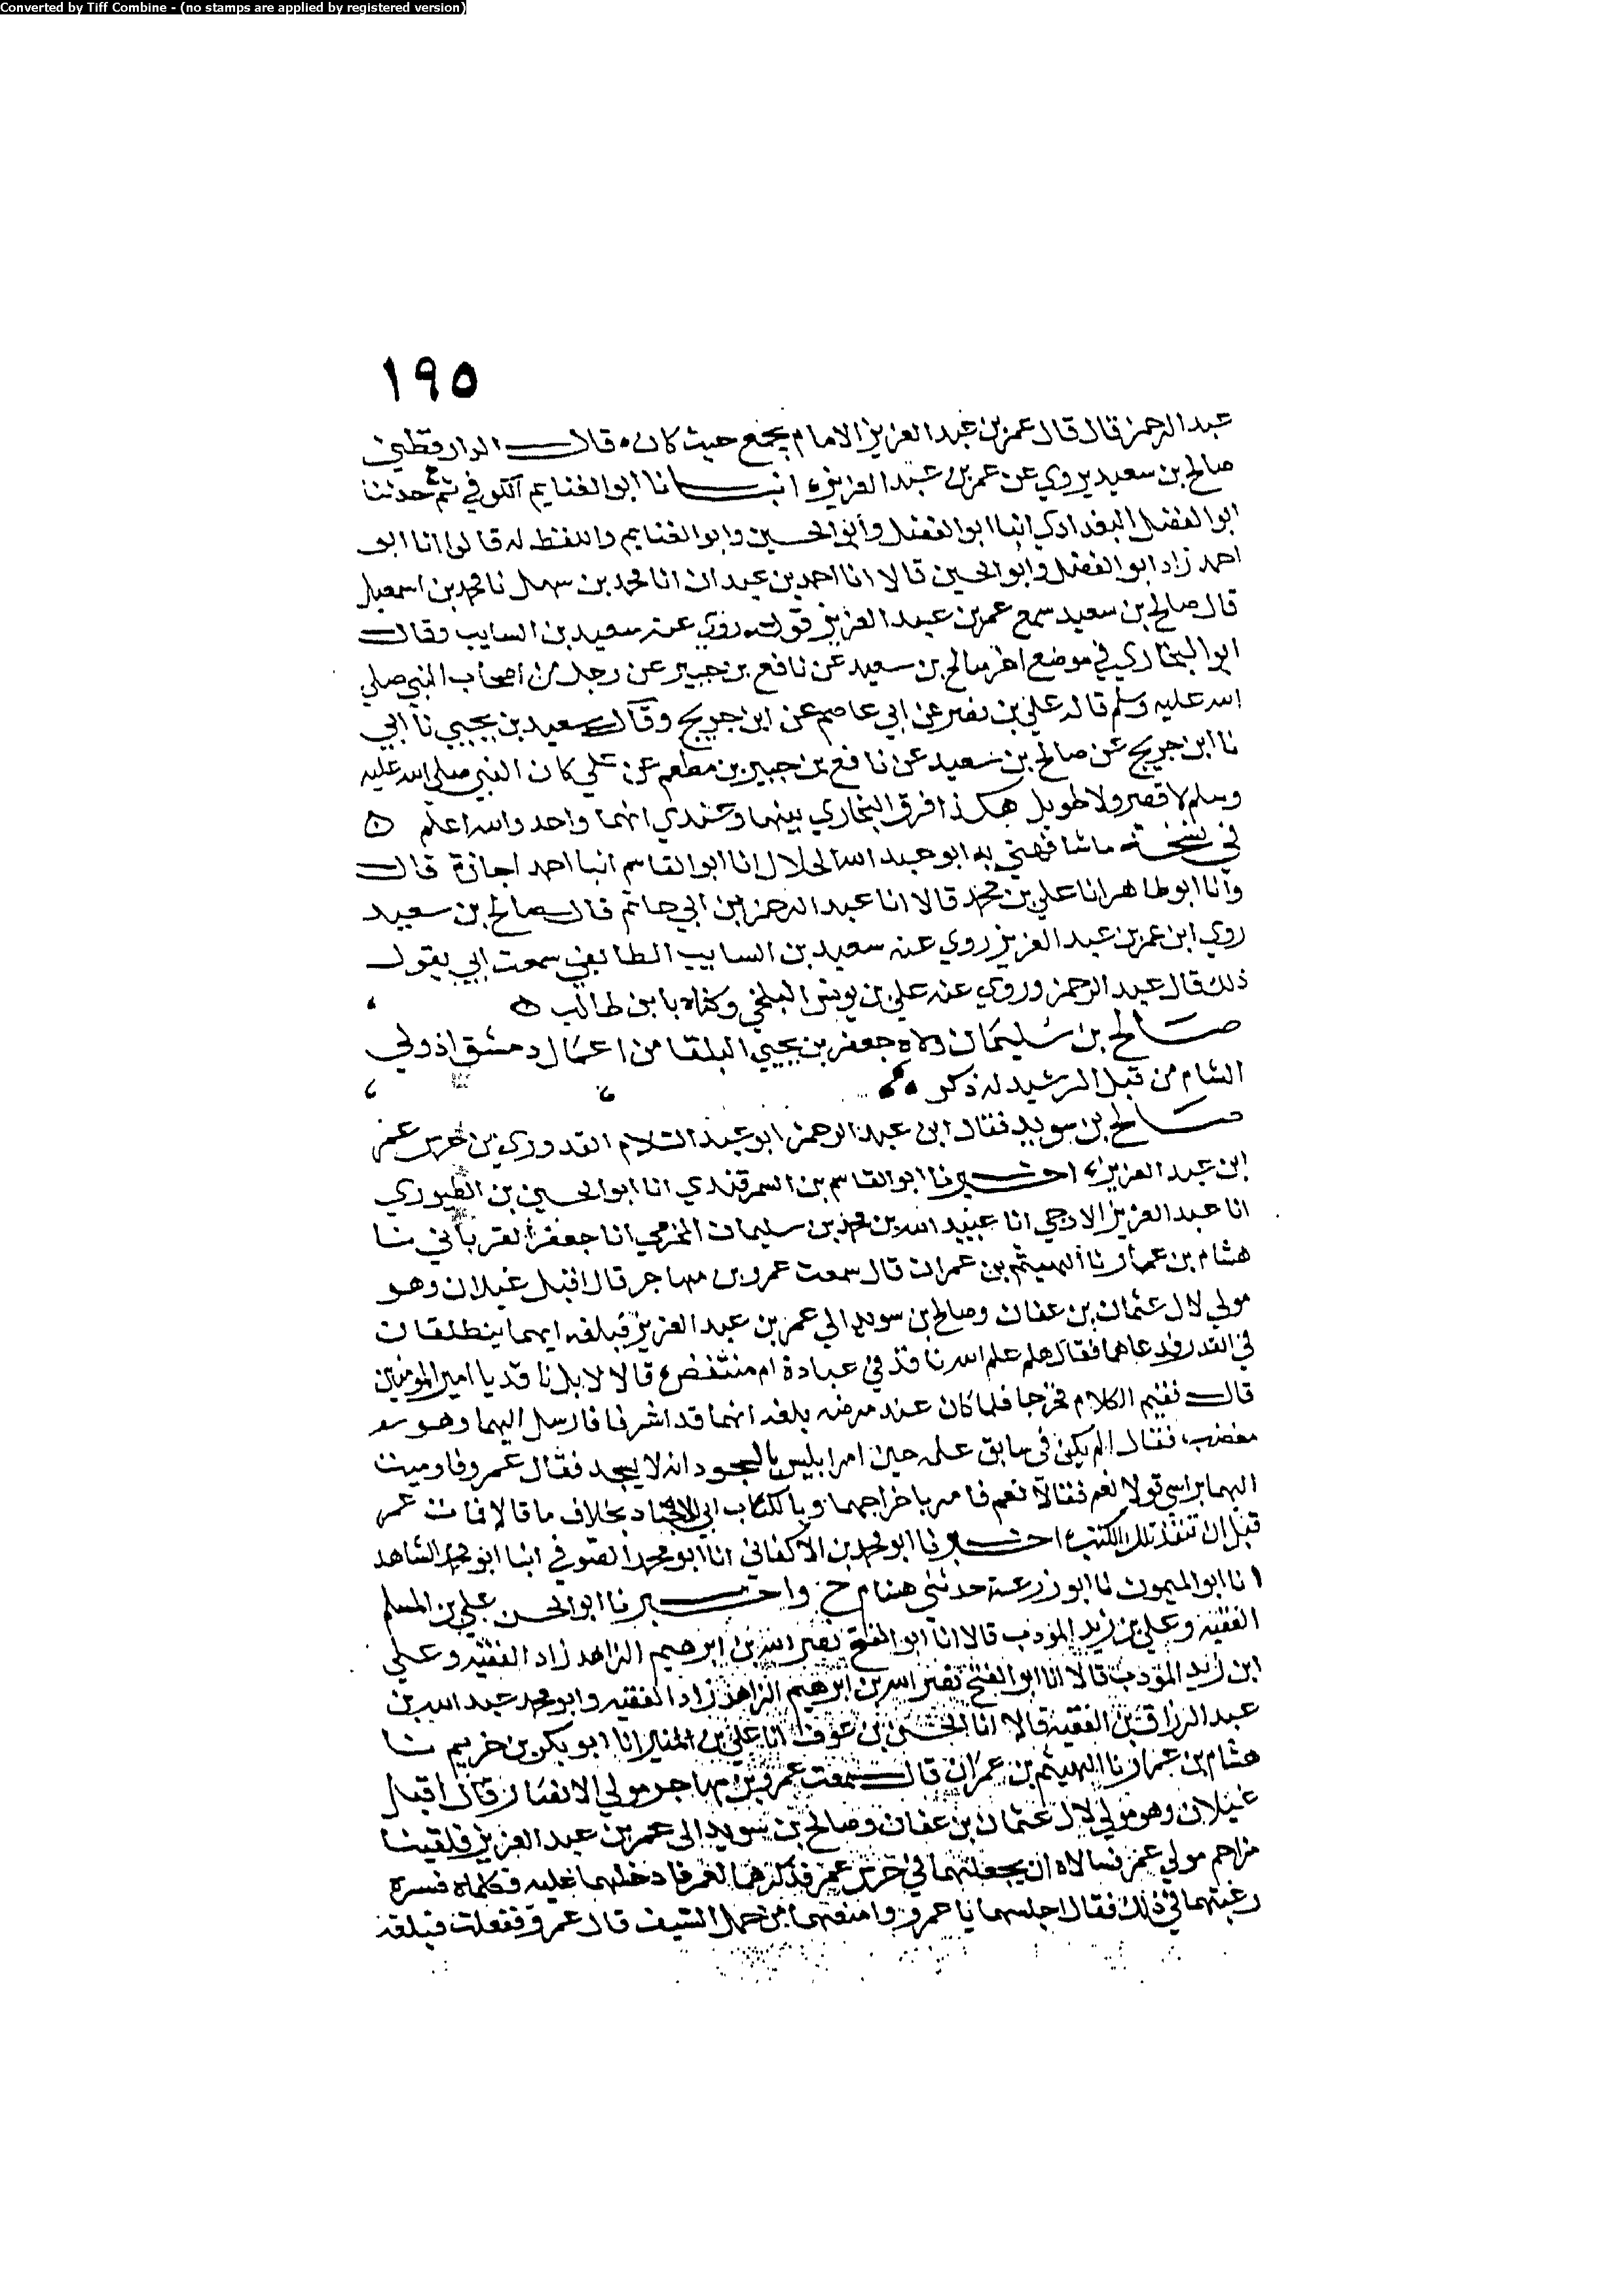 Converted by Tiff Combine - (no stamps are applied by registered version)
١٩٥
عبد الرحمن قال قال عمر بن عبد العزيز الامام يجمع حيث كان ه قال الدارقطني
صالح بن سعيد يروي عن عمر بن عبد العزيز ه انبانا ابو الغنايم الكوفي ثم حدثنا
ابو الفضل البغدادي انبا ابو الفضل وابو الحسين وابو الغنايم واللفظ له قالوا انا ابو
احمد زاد ابو الفضل وابو الحسين قالا انا احمد بن عبدان انا محمد بن سهل نا محمد بن اسمعيل
قال صالح بن سعيد سمع عمر بن عبد العزيز قوله روي عنه سعيد بن السايب وقال
ابو البخاري في موضع اخر صالح بن سعيد عن نافع بن جبير عن رجل من اصحاب النبي صلي
الله عليه وسلم قاله علي بن نصر عن ابي عاصم عن ابن جريج وقال سعيد بن يحيي نا ابي
نا ابن جريج عن صالح بن سعيد عن نافع بن جبير بن مطعم عن علي كان النبي صلي الله عليه
وسلم لا قصر ولا طويل هكذا فرق البخاري بينهما وعندي انهما واحد والله اعلم ه
في نسخة ما شافهني به ابو عبد الله الخلال انا ابو القاسم انبا احمد اجازة قال
وانا ابو طاهر انا علي بن محمد قالا انا عبد الرحمن بن ابي حاتم قال صالح بن سعيد
روي ابن عمر بن عبد العزيز روي عنه سعيد بن السايب الطايفي سمعت ابي يقول
ذلك قال عبد الرحمن وروي عنه علي بن يونس البلخي وكناه بابن طالب ه
صالح بن سليمان ولاه جعفر بن يحيي البلقا من اعمال دمشق اذ ولي
الشام من قبل الرشيد له ذكر
صالح بن سويد فقال ابن عبد الرحمن ابو عبد السلام القدوري بن حرس عمر
ابن عبد العزيز ه اخبرنا ابو القاسم بن السمرقندي انا ابو الحسين بن الطيوري
انا عبد العزيز الازجي انا عبيد الله بن محمد بن سليمان المخرمي انا جعفر القريابي نا
هشام بن عمار نا الهيثم بن عمران قال سمعت عمرو بن مهاجر قال اقبل غيلان وهو
مولي لال عثمان بن عفان وصالح بن سويد الي عمر بن عبد العزيز فبلغه انهما ينطلقان
في القدر فدعاهما فقال هلم علم الله نافذ في عباده ام منتقض قالا لا بل نافذ يا امير المومنين
قال ففيم الكلام فخرجا فلما كان عند مرضه بلغه انهما قد اشرفا فارسل اليهما وهو
مغضب فقال الم يكن في سابق علمه حين امر ابليس بالسجود انه لا يسجد فقال عمرو فاوميت
اليهما براسي قولا نعم فقالا نعم فامر باخراجهما وبالكتاب الي الاجناد بخلاف ما قالا فمات عمر
قبل ان تنفذ تلك الكتب ه اخبرنا ابو محمد بن الاكفاني انا ابو محمد الصوفي انبا ابو محمد الشاهد
انا ابو الميمون نا ابو زرعة حدثني هشام ح واخبرنا ابو الحسن علي بن المسلم
الفقيه وعلي بن زيد المؤدب قالا انا ابو الفتح نصر الله بن ابرهيم الزاهد زاد الفقيه وعلي
ابن زيد المؤدب قالا انا ابو الفتح نصر الله بن ابرهيم الزاهد زاد الفقيه وابو محمد عبد الله بن
عبد الرزاق بن الفقيه قالا انا الحسن بن عوف انا علي بن المنير انا ابو بكر بن خريم نا
هشام بن عمار نا الهيثم بن عمران قال سمعت عمرو بن مهاجر مولي الانصار قال اقبل
غيلان وهو مولي لال عثمان بن عفان وصالح بن سويد الي عمر بن عبد العزيز فلقينا
مزاحم مولي عمر فسالاه ان يجعلهما في حرس عمر فذكرهما لعمر فادخلهما عليه فكلماه فسره
رغبتهما في ذلك فقال اجلسهما يا عمرو وامنعهما من حمل السيف قال عمرو ففعلت فبلغه